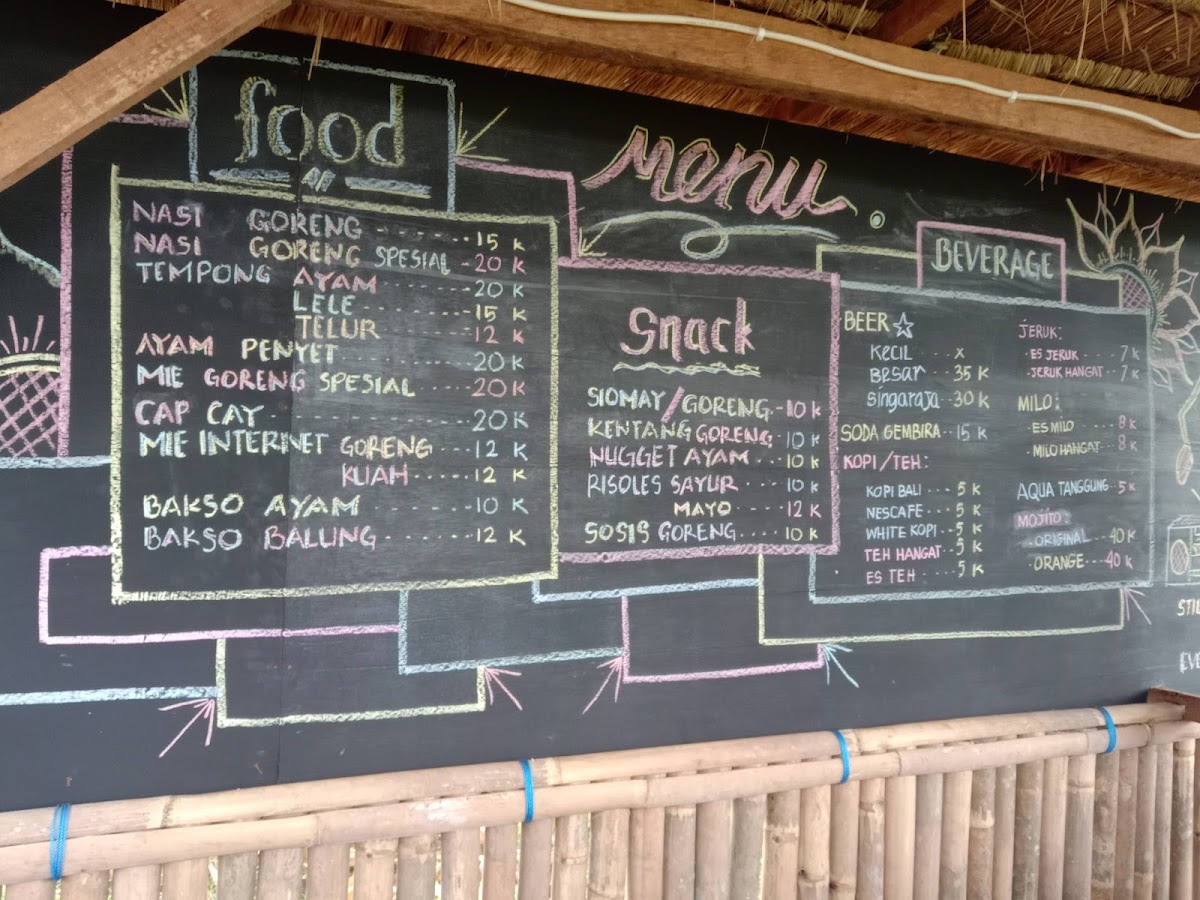 food
NASI GORENG ........ 15 K
NASI GORENG SPESIAL - 20 K
TEMPONG AYAM ........ 20 K
LELE ........ 15 K
TELUR ........ 12 K
AYAM PENYET ........ 20 K
MIE GORENG SPESIAL .... 20 K
CAP CAY ........ 20 K
MIE INTERNET GORENG .... 12 K
KUAH .... 12 K
BAKSO AYAM ........ 10 K
BAKSO BALUNG ........ 12 K
Menu
Snack
SIOMAY/GORENG.-10 K
KENTANG GORENG 10 K
NUGGET AYAM ... 10 K
RISOLES SAYUR ... 10 K
MAYO ..... 12 K
SOSIS GORENG.... 10 K
BEVERAGE
BEER
KECIL ... X
BESAR ... 35 K
Singaraja .. 30 K
SODA GEMBIRA .. 15 K
KOPI/TEH:
KOPI BALI ... 5 K
NESCAFE ... 5 K
WHITE KOPI .. 5 K
TEH HANGAT .. 5 K
ES TEH .... 5 K
JERUK:
ES JERUK .... 7 K
JERUK HANGAT .. 7 K
MILO:
ES MILO .... 8 K
MILO HANGAT .. 8 K
AQUA TANGGUNG .. 5 K
MOJITO:
ORIGINAL ... 40 K
ORANGE ... 40 K